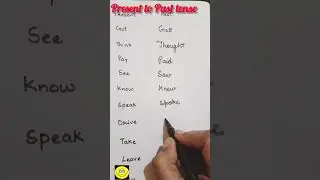 Present to Past tense
Present Past
Get Got
Think Thought
Pay Paid
See Saw
Know Knew
Speak Spoke
Drive
Take
Leave
See
Know
Speak